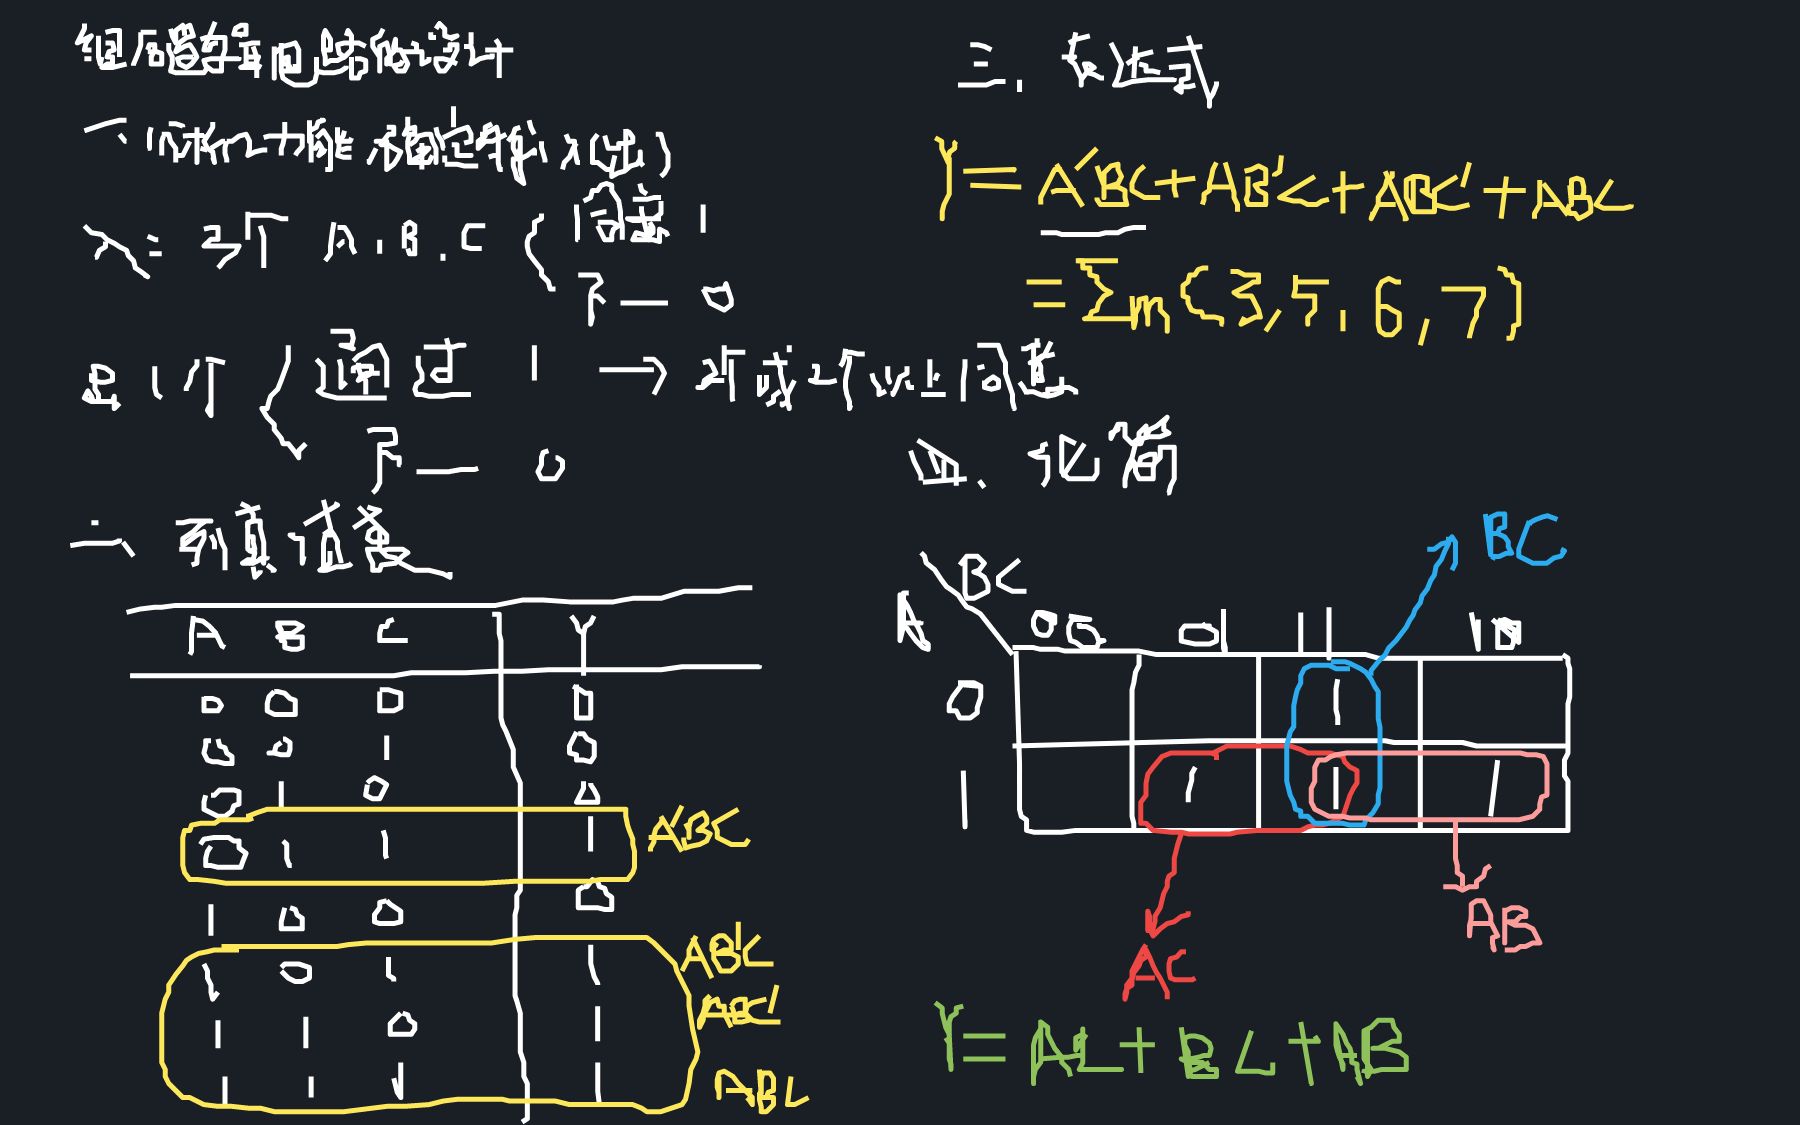 组合逻辑电路的设计
一、(分析功能,确定输入输出)
入: 3个 A,B,C { 同意 1
不一 0
出 1个 { 通过 1 → 2个或2个以上同意
不一 0
二、列真值表
A B C Y
0 0 0 0
0 0 1 0
0 1 0 0
0 1 1 1 A'BC
1 0 0 0
1 0 1 1 AB'C
1 1 0 1 ABC'
1 1 1 1 ABC
三、表达式
Y = A'BC + AB'C + ABC' + ABC
= Σm(3,5,6,7)
四、化简
BC
A BC 00 01 11 10
0 1
1 1 1 1
AC
AB
Y = AC + BC + AB